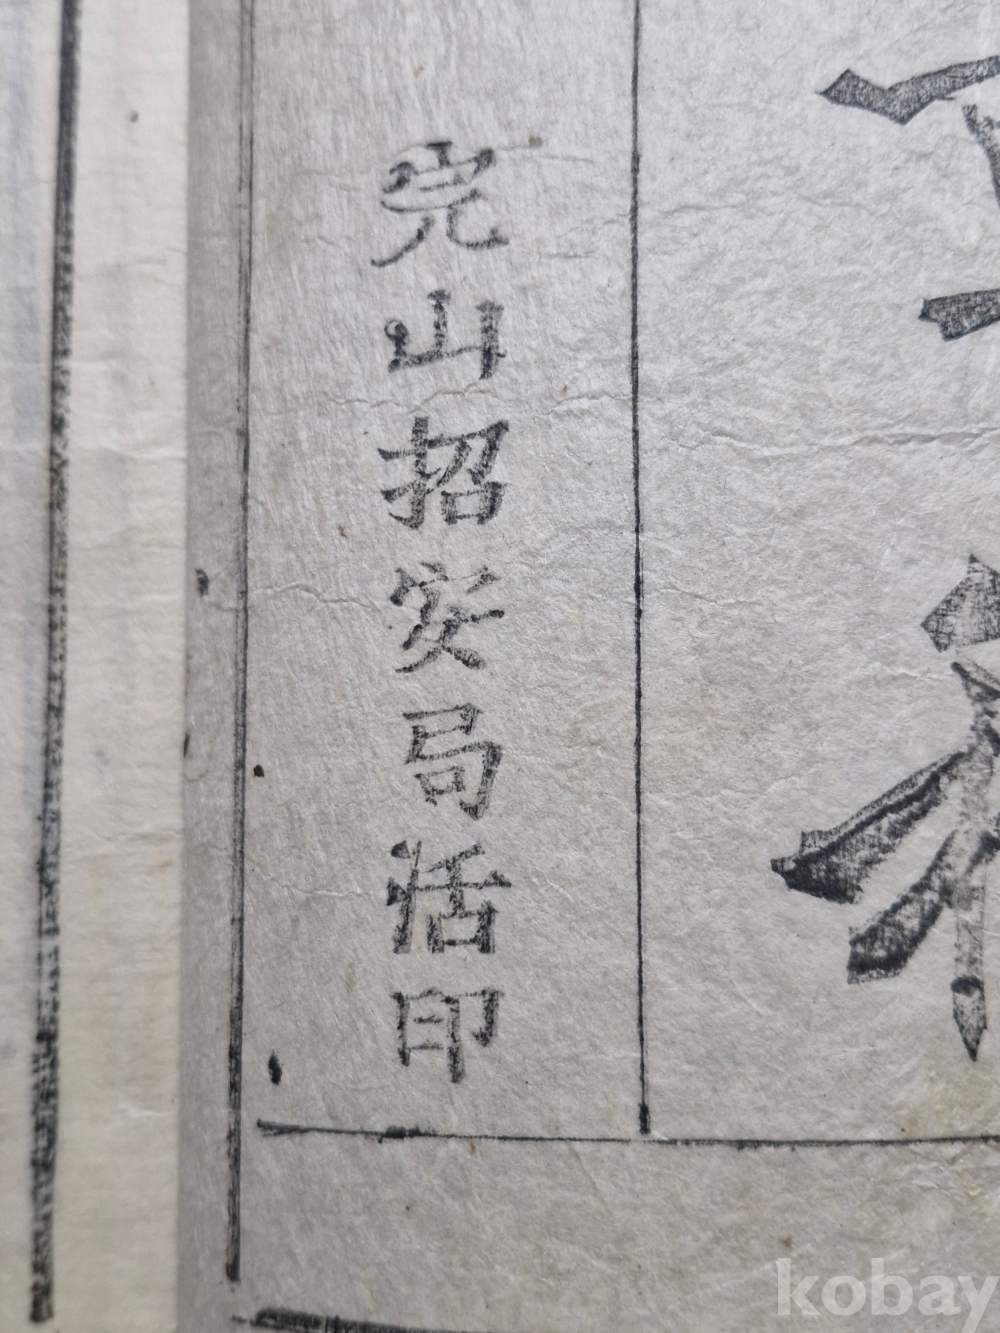 完山招安局活印
kobay